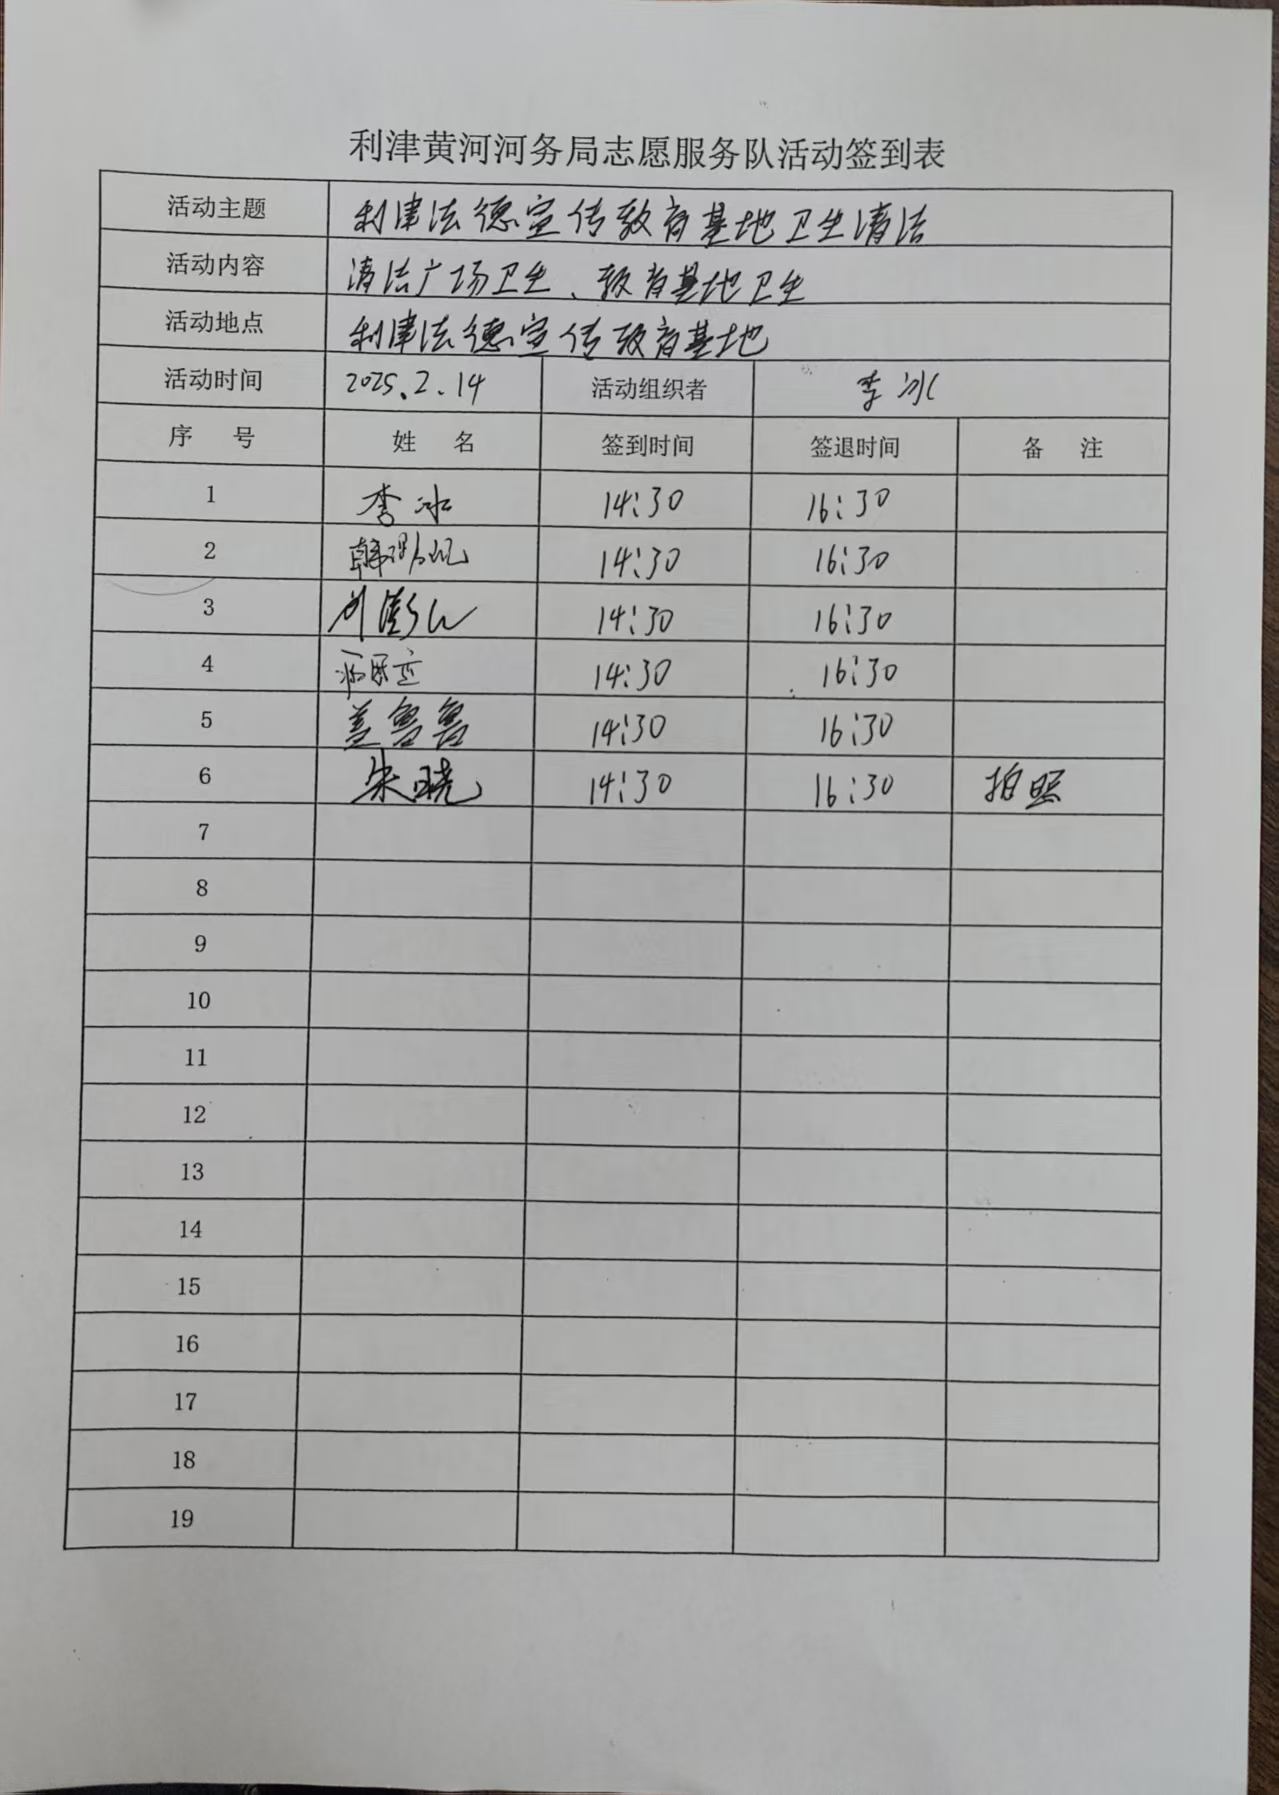 利津黄河河务局志愿服务队活动签到表
活动主题 利津法德宣传教育基地卫生清洁
活动内容 清洁广场卫生、教育基地卫生
活动地点 利津法德宣传教育基地
活动时间 2025.2.14 活动组织者 李冰
序 号 姓 名 签到时间 签退时间 备 注
1 李冰 14:30 16:30
2 韩 14:30 16:30
3 刘澎 14:30 16:30
4 14:30 16:30
5 盖鲁鲁 14:30 16:30
6 朱晓 14:30 16:30 拍照
7
8
9
10
11
12
13
14
15
16
17
18
19